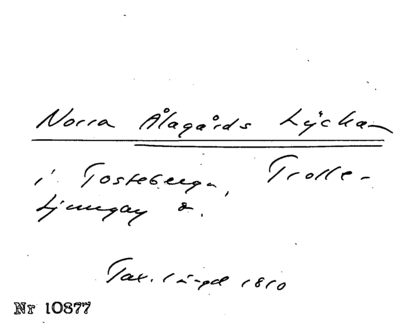 Norra Ålagårds Lyckan
i Tosteberga, Trolle-
Ljungby s.
Tax. längd 1810
Nr 10877